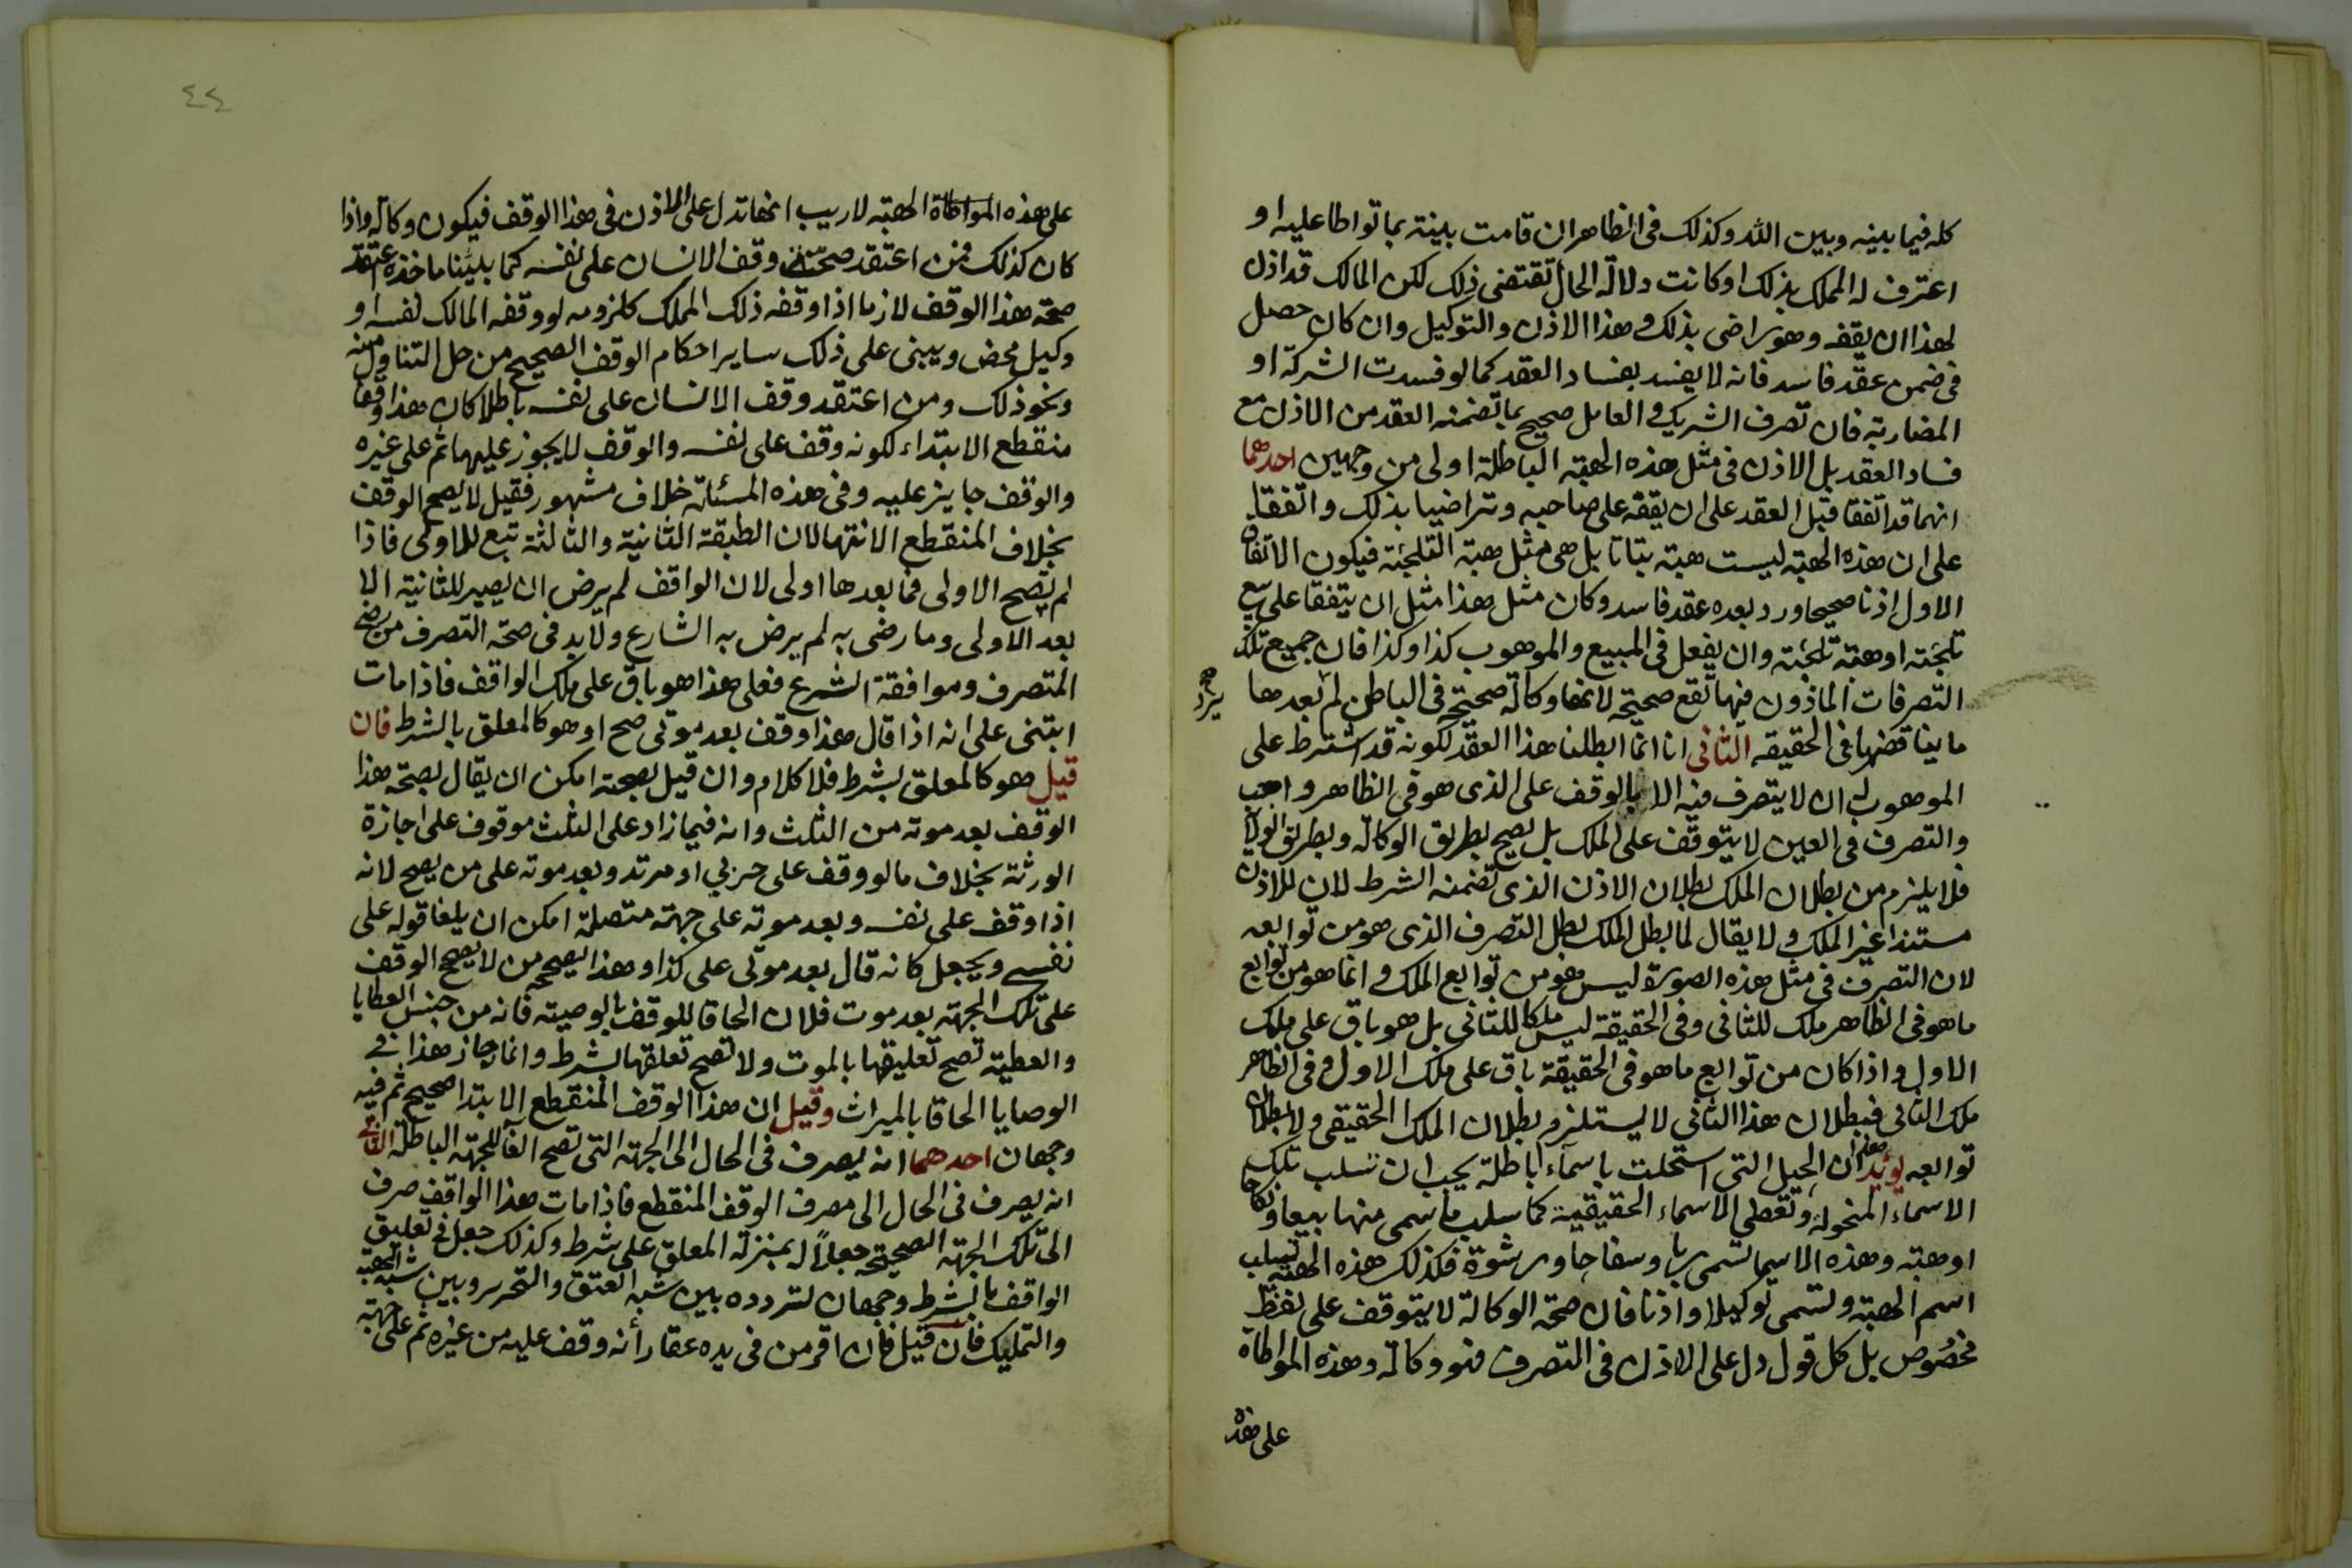 كله فيما بينه وبين الله وكذلك فى الظاهر ان قامت بينة بما تواطا عليه او
اعترف له المملك بذلك او كانت دلالة الحال تقتضى ذلك لكن المالك قد اذن
لهذا ان يقفه وهو راضى بذلك وهذا الاذن والتوكيل وان كان حصل
فى ضمن عقد فاسد فانه لا يفسد بفساد العقد كما لو فسدت الشركة او
المضاربة فان تصرف الشريك والعامل صحيح بما تضمنه العقد من الاذن مع
فساد العقد بل الاذن فى مثل هذه الهبة الباطلة اولى من وجهين احدهما
انهما قد اتفقا قبل العقد على ان يقفه على صاحبه وتراضيا بذلك واتفقا
على ان هذه الهبة ليست هبة بتاتا بل هى مثل هبة التلجئة فيكون الاتفاق
الاول اذنا صحيحا ورد بعده عقد فاسد وكان مثل هذا مثل ان يتفقا على بيع
تلجئة او هبة تلجئة وان يفعل فى المبيع والموهوب كذا وكذا فان جميع تلك
التصرفات الماذون فيها تقع صحيحة لانها وكالة صحيحة فى الباطن لم يرد بعدها
ما يناقضها فى الحقيقه الثانى انا انما ابطلنا هذا العقد لكونه قد اشترط على
الموهوب له ان لا يتصرف فيه الا بالوقف على الذى هو فى الظاهر واهب
والتصرف فى العين لا يتوقف على الملك بل يصح بطريق الوكالة وبطريق الولاية
فلا يلزم من بطلان الملك بطلان الاذن الذى تضمنه الشرط لان للاذن
مستندا غير الملك ولا يقال لما بطل الملك بطل التصرف الذى هو من توابعه
لان التصرف فى مثل هذه الصورة ليس هو من توابع الملك وانما هو من توابع
ما هو فى الظاهر ملك للثانى وفى الحقيقة ليس ملكا للثانى بل هو باق على ملك
الاول واذا كان من توابع ما هو فى الحقيقة باق على ملك الاول وفى الظاهر
ملك الثانى فبطلان هذا الثانى لا يستلزم بطلان الملك الحقيقى ولا بطلان
توابعه يؤيد هذا ان الحيل التى استحلت باسماء باطلة يجب ان تسلب تلك
الاسماء المنحولة وتعطى الاسماء الحقيقية كما سلب ما سمى منها بيعا ونكاحا
او هبة وهذه الاسيما تسمى ربا وسفاحا ورشوة فكذلك هذه الهبة تسلب
اسم الهبة وتسمى توكيلا واذنا فان صحة الوكالة لا يتوقف على لفظ
مخصوص بل كل قول دل على الاذن فى التصرف فهو وكالة وهذه المواطاة
على هذه
٤٤
على هذه المواطاة الهبة لا ريب انها تدل على الاذن فى هذا الوقف فيكون وكالة واذا
كان كذلك فمن اعتقد صحة وقف الانسان على نفسه كما بلينا ماخذه اعتقد
صحة هذا الوقف لازما اذا وقفه ذلك المملك كلزومه لو وقفه المالك نفسه او
وكيل محض ويبنى على ذلك ساير احكام الوقف الصحيح من حل التناول منه
ونحو ذلك ومن اعتقد وقف الانسان على نفسه باطلا كان هذا وقفا
منقطع الابتداء لكونه وقف على نفسه والوقف لا يجوز عليها ثم على غيره
والوقف جايز عليه وفى هذه المسئلة خلاف مشهور فقيل لا يصح الوقف
بخلاف المنقطع الانتها لان الطبقة الثانية والثالثة تبع للاولى فاذا
لم تصح الاولى فما بعدها اولى لان الواقف لم يرض ان يصير للثانية الا
بعد الاولى وما رضى به لم يرض به الشارع ولا بد فى صحة التصرف من رضى
المتصرف وموافقة الشرع فعلى هذا هو باق على ملك الواقف فاذا مات
ابتنى على انه اذا قال هذا وقف بعد موتى صح او هو كالمعلق بالشرط فان
قيل هو كالمعلق بشرط فلا كلام وان قيل بصحته امكن ان يقال بصحة هذا
الوقف بعد موته من الثلث وانه فيما زاد على الثلث موقوف على اجازة
الورثة بخلاف ما لو وقف على حربي او مرتد وبعد موته على من يصح لانه
اذا وقف على نفسه وبعد موته على جهة متصلة امكن ان يلغا قوله على
نفسى ويجعل كانه قال بعد موتى على كذا وهذا يصححه من لا يصحح الوقف
على تلك الجهة بعد موت فلان الحاقا للوقف بالوصية فانه من جنس العطايا
والعطية تصح تعليقها بالموت ولا تصح تعلقها بشرط وانما جاز هذا فى
الوصايا الحاقا بالميراث وقيل ان هذا الوقف المنقطع الابتدا صحيح ثم فيه
وجهان احدهما انه يصرف فى الحال الى الجهة التى تصح الغا للجهة الباطلة الثانى
انه يصرف فى الحال الى مصرف الوقف المنقطع فاذا مات هذا الواقف صرف
الى تلك الجهة الصحيحة جعلا له بمنزلة المعلق على شرط وكذلك جعل فى تعليق
الواقف بالشرط وجهان لتردده بين شبه العتق والتحرير وبين شبه الهبة
والتمليك فان قيل فان اقر من فى يده عقار انه وقف عليه من غيره ثم على جهة